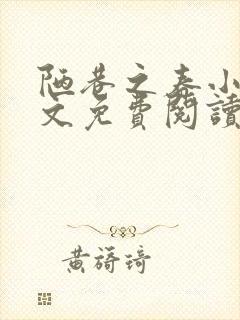 陋巷之春小
文免費閱讀
黃旖琦